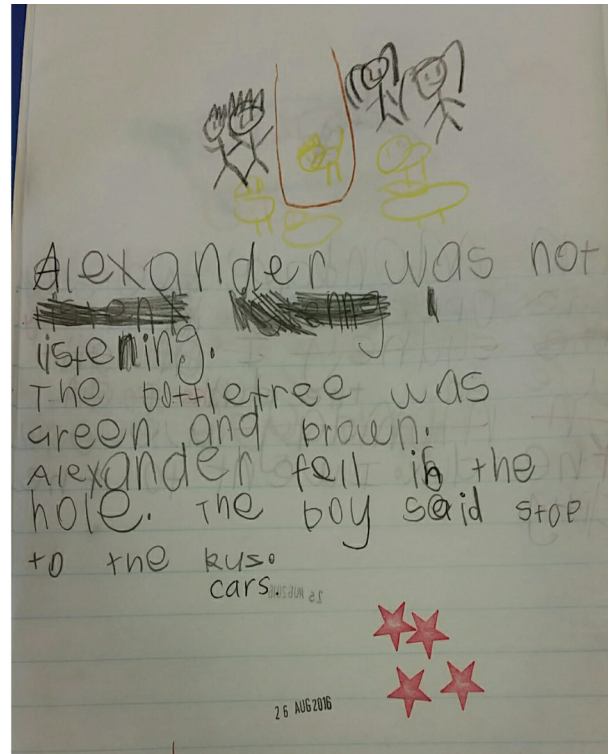 Alexander was not
listening.
The bottletree was
Green and brown.
Alexander fell in the
hole. The boy said stop
to the kuso
cars.
25 AUG 2016
26 AUG 2016